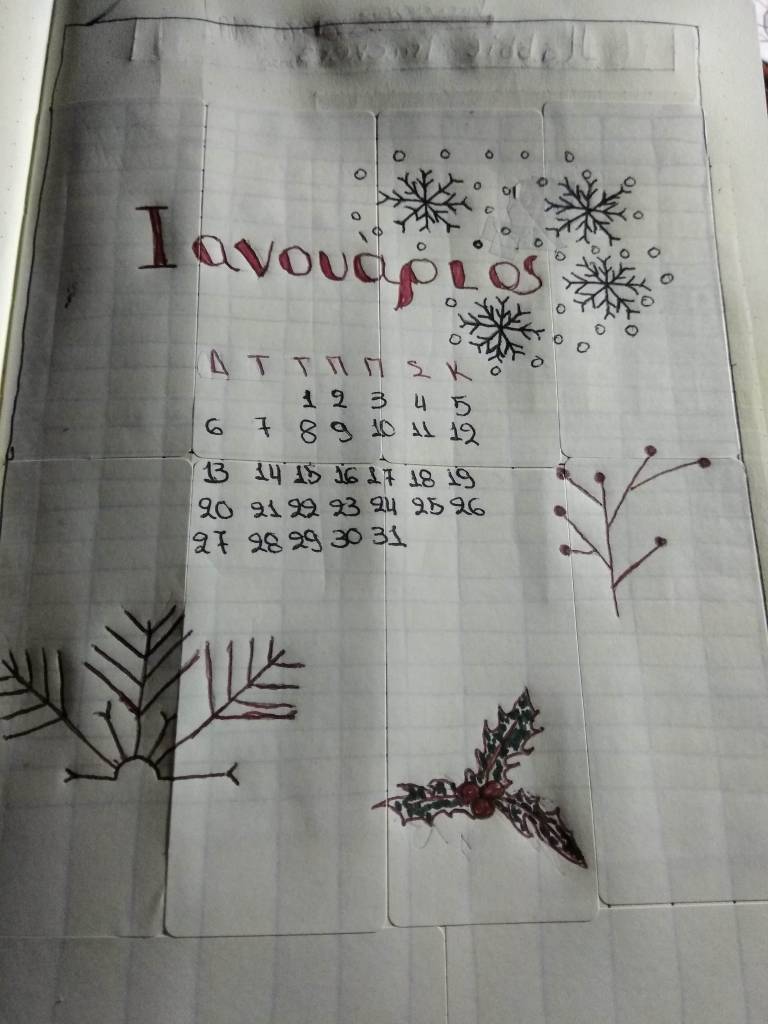 Ιανουάριος
Δ Τ Τ Π Π Σ Κ
1 2 3 4 5
6 7 8 9 10 11 12
13 14 15 16 17 18 19
20 21 22 23 24 25 26
27 28 29 30 31